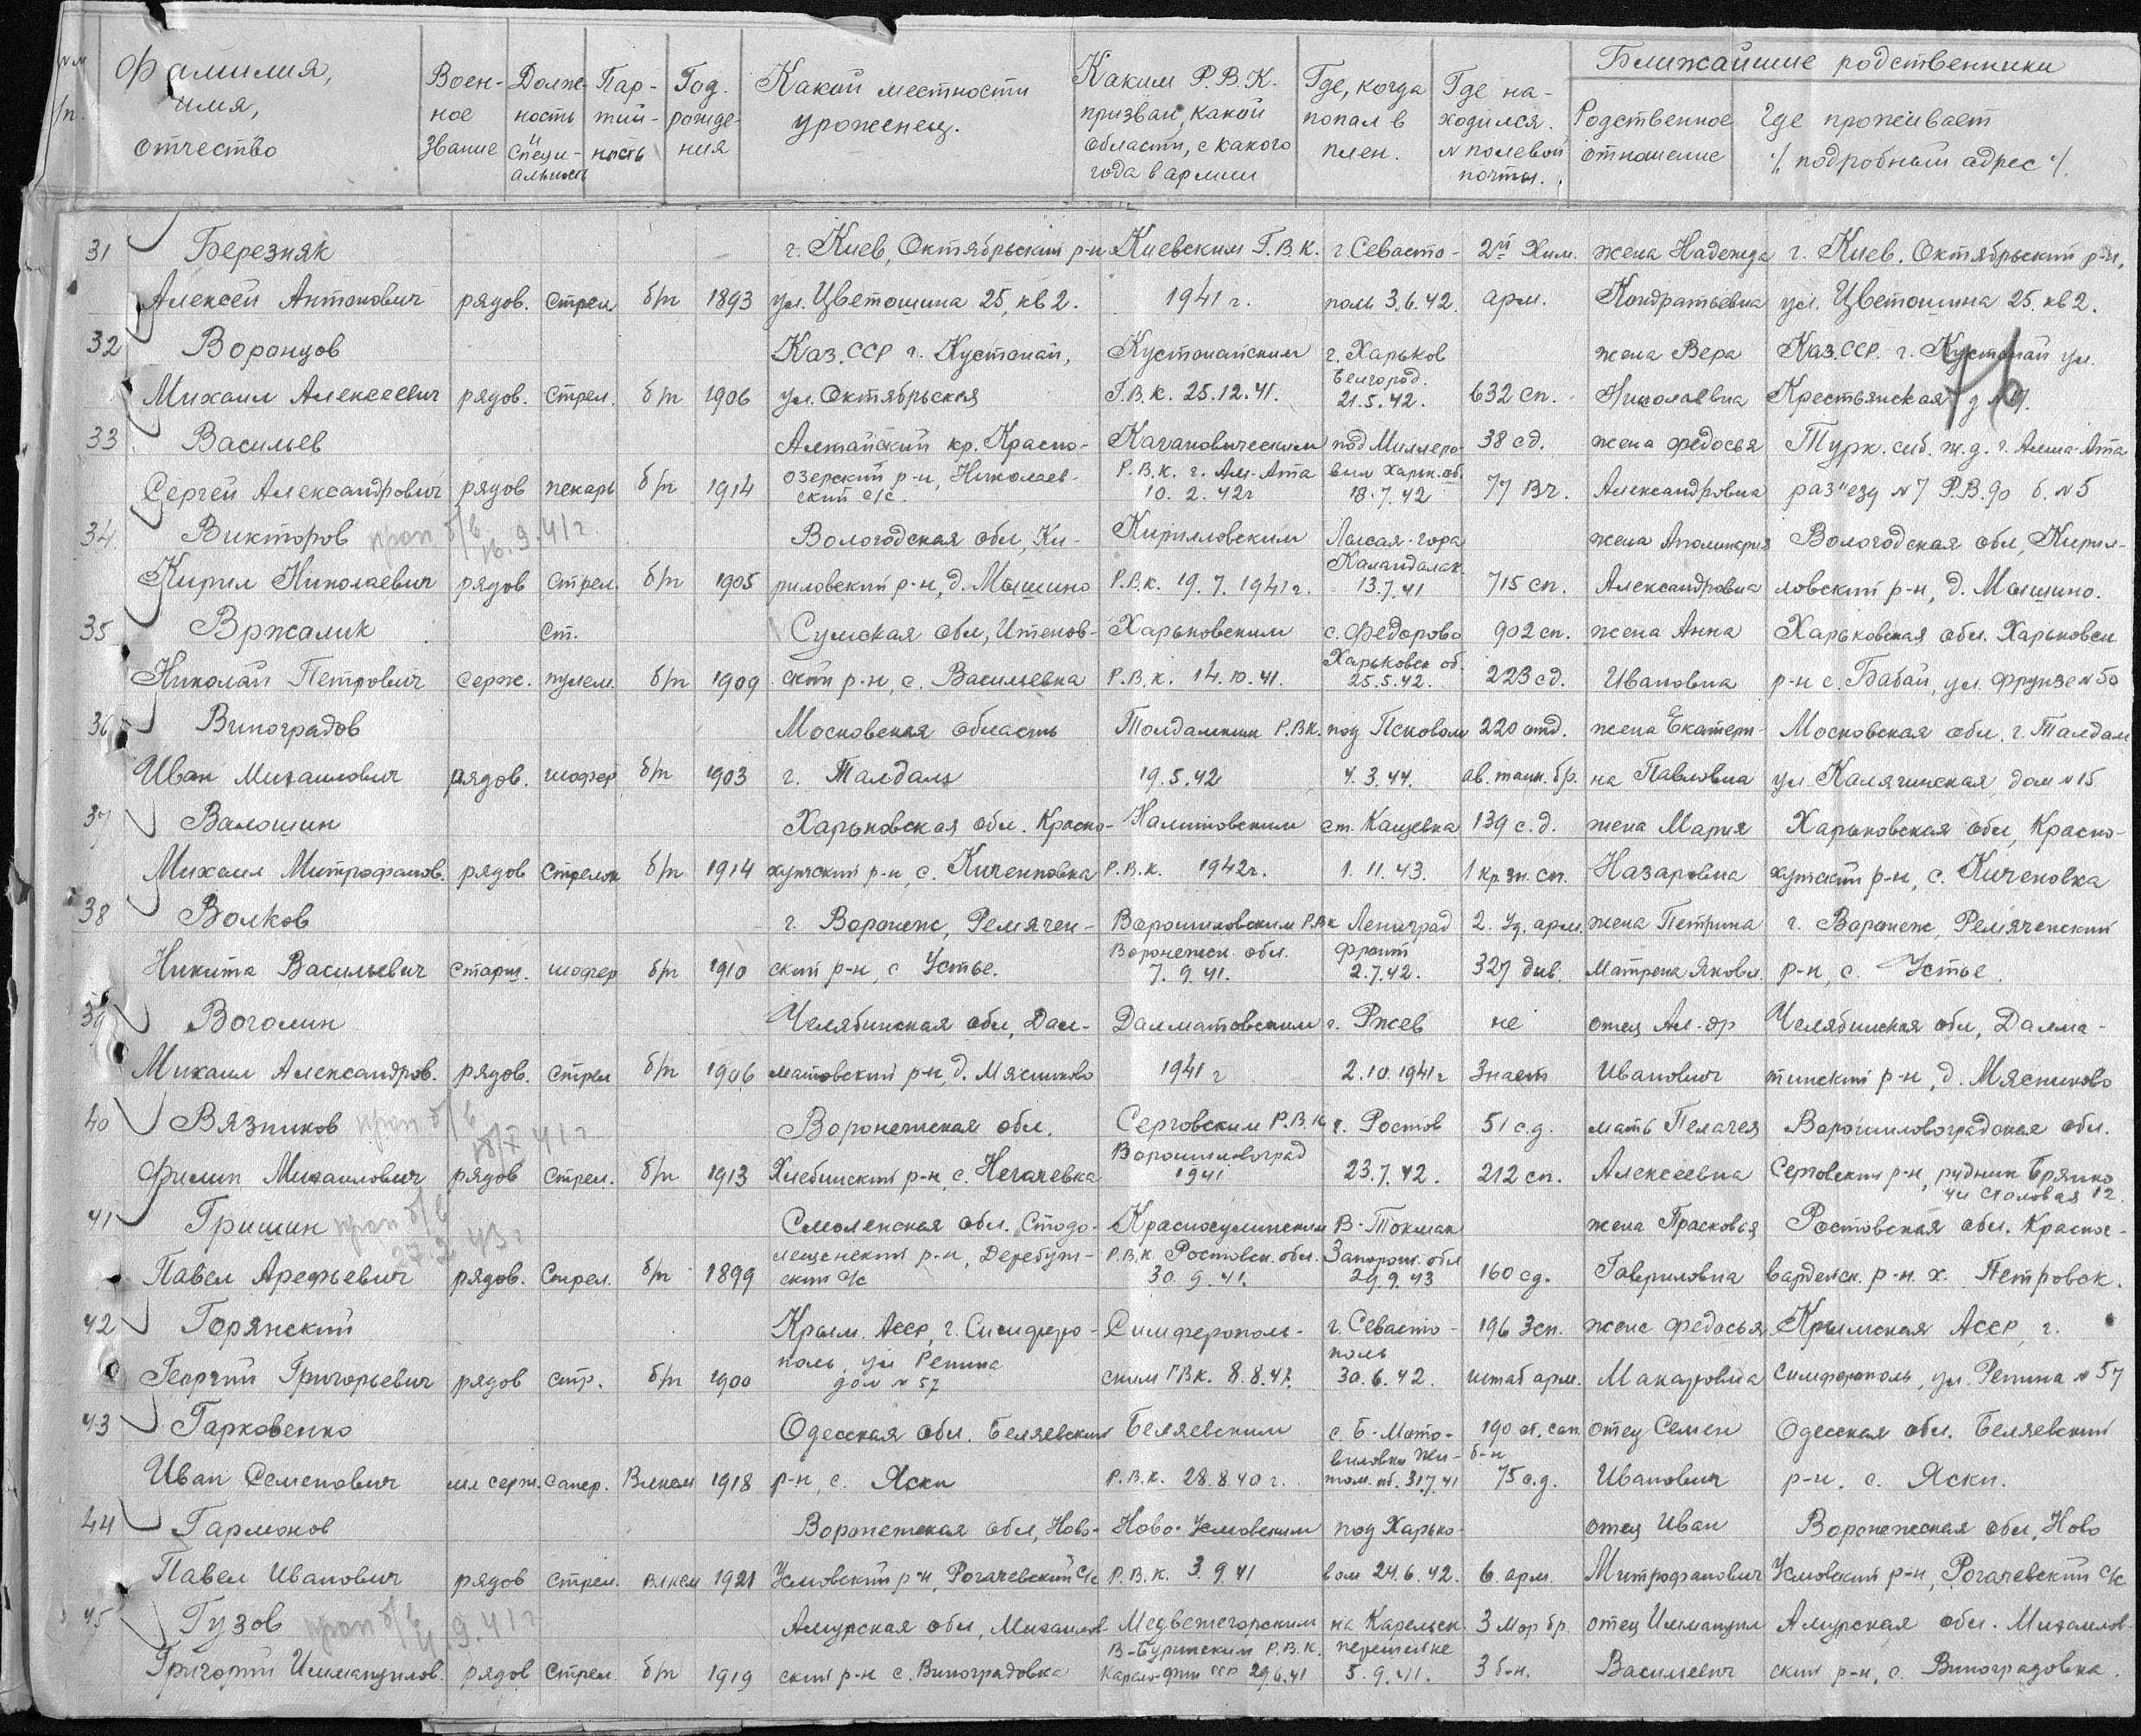 №№ п/п. Фамилия, имя, отчество | Воен-ное звание | Долж-ность и специ-альность | Пар-тий-ность | Год. рожде-ния | Какой местности уроженец. | Каким Р.В.К. призван, какой области, с какого года в армии | Где, когда попал в плен. | Где на-ходился. № полевой почты. | Ближайшие родственники
Родственное отношение | Где проживает /подробный адрес/.
31 Березняк | г. Киев, Октябрьский р-н | Киевским Г.В.К. | г. Севасто- | 2й Хим. | жена Надежда | г. Киев. Октябрьский р-н,
Алексей Антонович | рядов. | стрел | б/п | 1893 | ул. Цветошина 25, кв 2. | 1941 г. | поль 3.6.42. | арм. | Кондратьевна | ул. Цветошина 25. кв 2.
32 Воронцов | Каз. ССР г. Кустанай, | Кустанайским | г. Харьков | жена Вера | Каз. ССР. г. Кустанай ул.
Белгород.
Михаил Алексеевич | рядов. | стрел. | б/п | 1906 | ул. Октябрьская | Г.В.К. 25.12.41. | 21.5.42. | 632 сп. | Николаевна | Крестьянская
33 Васильев | Алтайский кр. Красно- | Кагановическим | под Миллеро- | 38 сд. | жена Федосья | Турк. сиб. ж.д. г. Алма-Ата
Сергей Александрович | рядов | пекарь | б/п | 1914 | озерский р-н, Николаев- | Р.В.К. г. Ал-Ата | вым Харьк. об.
ский с/с. | 10.2.42г | 18.7.42 | 77 ВЧ. | Александровна | раз"езд №7 Р.В.90 б. №5
34. Викторов проп б/в 16.9.41г | Вологодская обл, Ки- | Кирилловским | Лысая-гора | жена Аполинария | Вологодская обл, Кирил-
Каландалак.
Кирил Николаевич | рядов | стрел. | б/п | 1905 | риловский р-н, д. Мышино | Р.В.К. 19.7.1941г. | 13.7.41 | 715 сп. | Александровна | ловский р-н, д. Мышино.
35 Вржалик | Ст. | Сумская обл, Штепов- | Харьковским | с. Федорово | 902 сп. | жена Анна | Харьковская обл. Харьковск
Харьковск об.
Николай Петрович | серж. | пулем. | б/п | 1909 | ский р-н, с. Васильевка | Р.В.К. 14.10.41. | 25.5.42. | 223 сд. | Ивановна | р-н с. Бабаи, ул. Фрунзе №50
36 Виноградов | Московская область | Толдамским Р.ВК. | под Псковом | 220 отд. | жена Екатери- | Московская обл. г. Талдам
Иван Михаилович | рядов. | шофер | б/п | 1903 | г. Талдам | 19.5.42 | 4.3.44. | ав. танк. бр. | на Павловна | ул. Калягинская, дом №15
37 Валошин | Харьковская обл. Красно- | Налитовским | ст. Кащевка | 139 с.д. | жена Мария | Харьковская обл, Красно-
Михаил Митрофанов. | рядов | стрелок | б/п | 1914 | кутский р-н, с. Киченковка | Р.В.К. 1942г. | 1.11.43. | 1 кр.зн. сп. | Назаровна | кутский р-н, с. Киченовка
38 Волков | г. Воронеж, Ремячен- | Ворошиловским Р.ВК | Ленинград | 2. Уд. арм. | жена Петрина | г. Воронеж, Ремяченский
Воронежск. обл. | фронт
Никита Васильевич | старш. | шофер | б/п | 1910 | ский р-н, с Устье. | 7.9.41. | 2.7.42. | 327 див. | Матрена Яковл. | р-н, с. Устье.
39 Воголин | Челябинская обл, Дал- | Далматовским | г. Ржев | не | отец Ал-др | Челябинская обл, Далма-
Михаил Александров. | рядов. | стрел | б/п | 1906 | матовский р-н, д. Мясниково | 1941 г | 2.10.1941г | знает | Иванович | тинский р-н, д. Мясниково
40 Вязников проп б/в 10/X 41г | Воронежская обл. | Серговским Р.В.К | г. Ростов | 51 с.д. | мать Пелагея | Ворошиловоградская обл.
Ворошиловоград
Филип Михаилович | рядов | стрел. | б/п | 1913 | Хлебинский р-н, с. Негачевка | 1941 | 23.7.42. | 212 сп. | Алексеевна | Серговский р-н, рудник Брянко
ул Столовая 12.
41 Гришин проп б/в 27.2.43г | Смоленская обл. Стодо- | Красносулинским | В-Токмак | жена Прасковья | Ростовская обл. Красног-
лещенский р-н, Деребуж- | Р.В.К. Ростовск. обл. | Запорож. обл
Павел Арефьевич | рядов. | Стрел. | б/п | 1899 | ский с/с | 30.9.41. | 29.9.43 | 160 сд. | Гавриловна | вардейск. р-н. х. Петровск.
42 Горянский | Крым. Асср, г. Симферо- | Симферополь- | г. Севасто- | 196 Зсп. | жена Федосья | Крымская АССР, г.
поль, ул Репина | поль
Георгий Григорьевич | рядов | стр. | б/п | 1900 | дом № 57 | ским ГВК. 8.8.41. | 30.6.42. | штаб арм. | Макаровна | Симферополь, ул. Репина № 57
43 Гарковенко | Одесская обл. Беляевский | Беляевским | с. Б-Мото- | 190 от. сап | отец Семен | Одесская обл. Беляевский
виловка Жи- | б-н
Иван Семенович | мл серж. | сапер. | Влксм | 1918 | р-н, с. Яски | Р.В.К. 28.8.40 г. | том. об. 31.7.41 | 75 с.д. | Иванович | р-н, с. Яски.
44 Гармонов | Воронежская обл, Ново- | Ново-Усмовским | под Харько- | отец Иван | Воронежская обл, Ново
Павел Иванович | рядов | стрел. | влксм | 1921 | Усмовский р-н, Рогачевский с/с | Р.В.К. 3.9.41 | вом 24.6.42. | 6. арм. | Митрофанович | Усмовский р-н, Рогачевский с/с
45 Гузов проп б/в 4.9.41г | Амурская обл, Михаилов | Медвежегорским | на Карельск. | 3 Мор бр. | отец Иммануил | Амурская обл. Михаилов-
В-Буринским Р.В.К. | перешейке
Григорий Иммануилов. | рядов | Стрел. | б/п | 1919 | ский р-н с. Виноградовка | Карело-фин ССР 29.6.41 | 5.9.41. | 3 б-н. | Васильевич | ский р-н, с. Виноградовка.